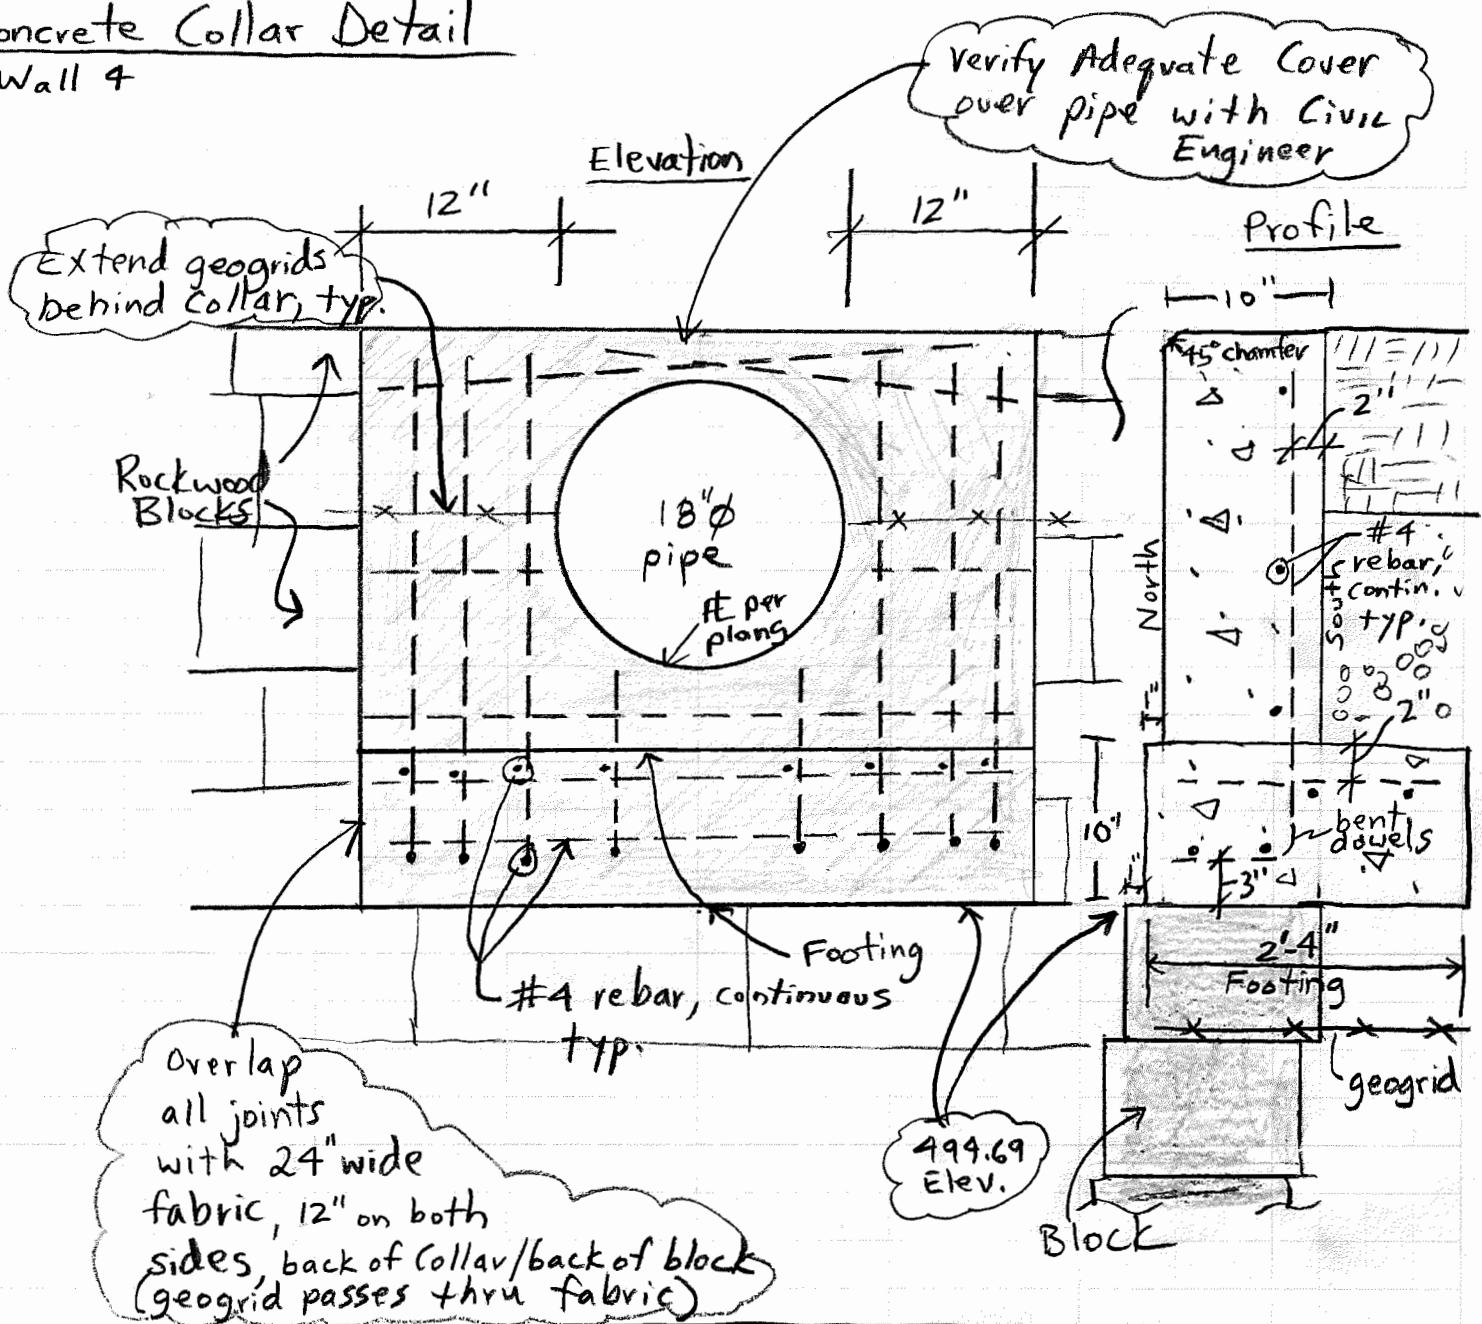 oncrete Collar Detail
Wall 4
Verify Adequate Cover
over pipe with Civil
Engineer
Elevation
12"
12"
Profile
Extend geogrids
behind Collar, typ.
10"
45° chamfer
2"
Rockwood
Blocks
18"ø
pipe
#4
rebar,
contin.
typ.
North
South
FE per
plans
1"
2"
10"
bent
dowels
1"
3"
Footing
2'-4"
Footing
#4 rebar, continuous
typ.
geogrid
Overlap
all joints
with 24" wide
fabric, 12" on both
sides, back of Collar/back of block
(geogrid passes thru fabric)
494.69
Elev.
Block